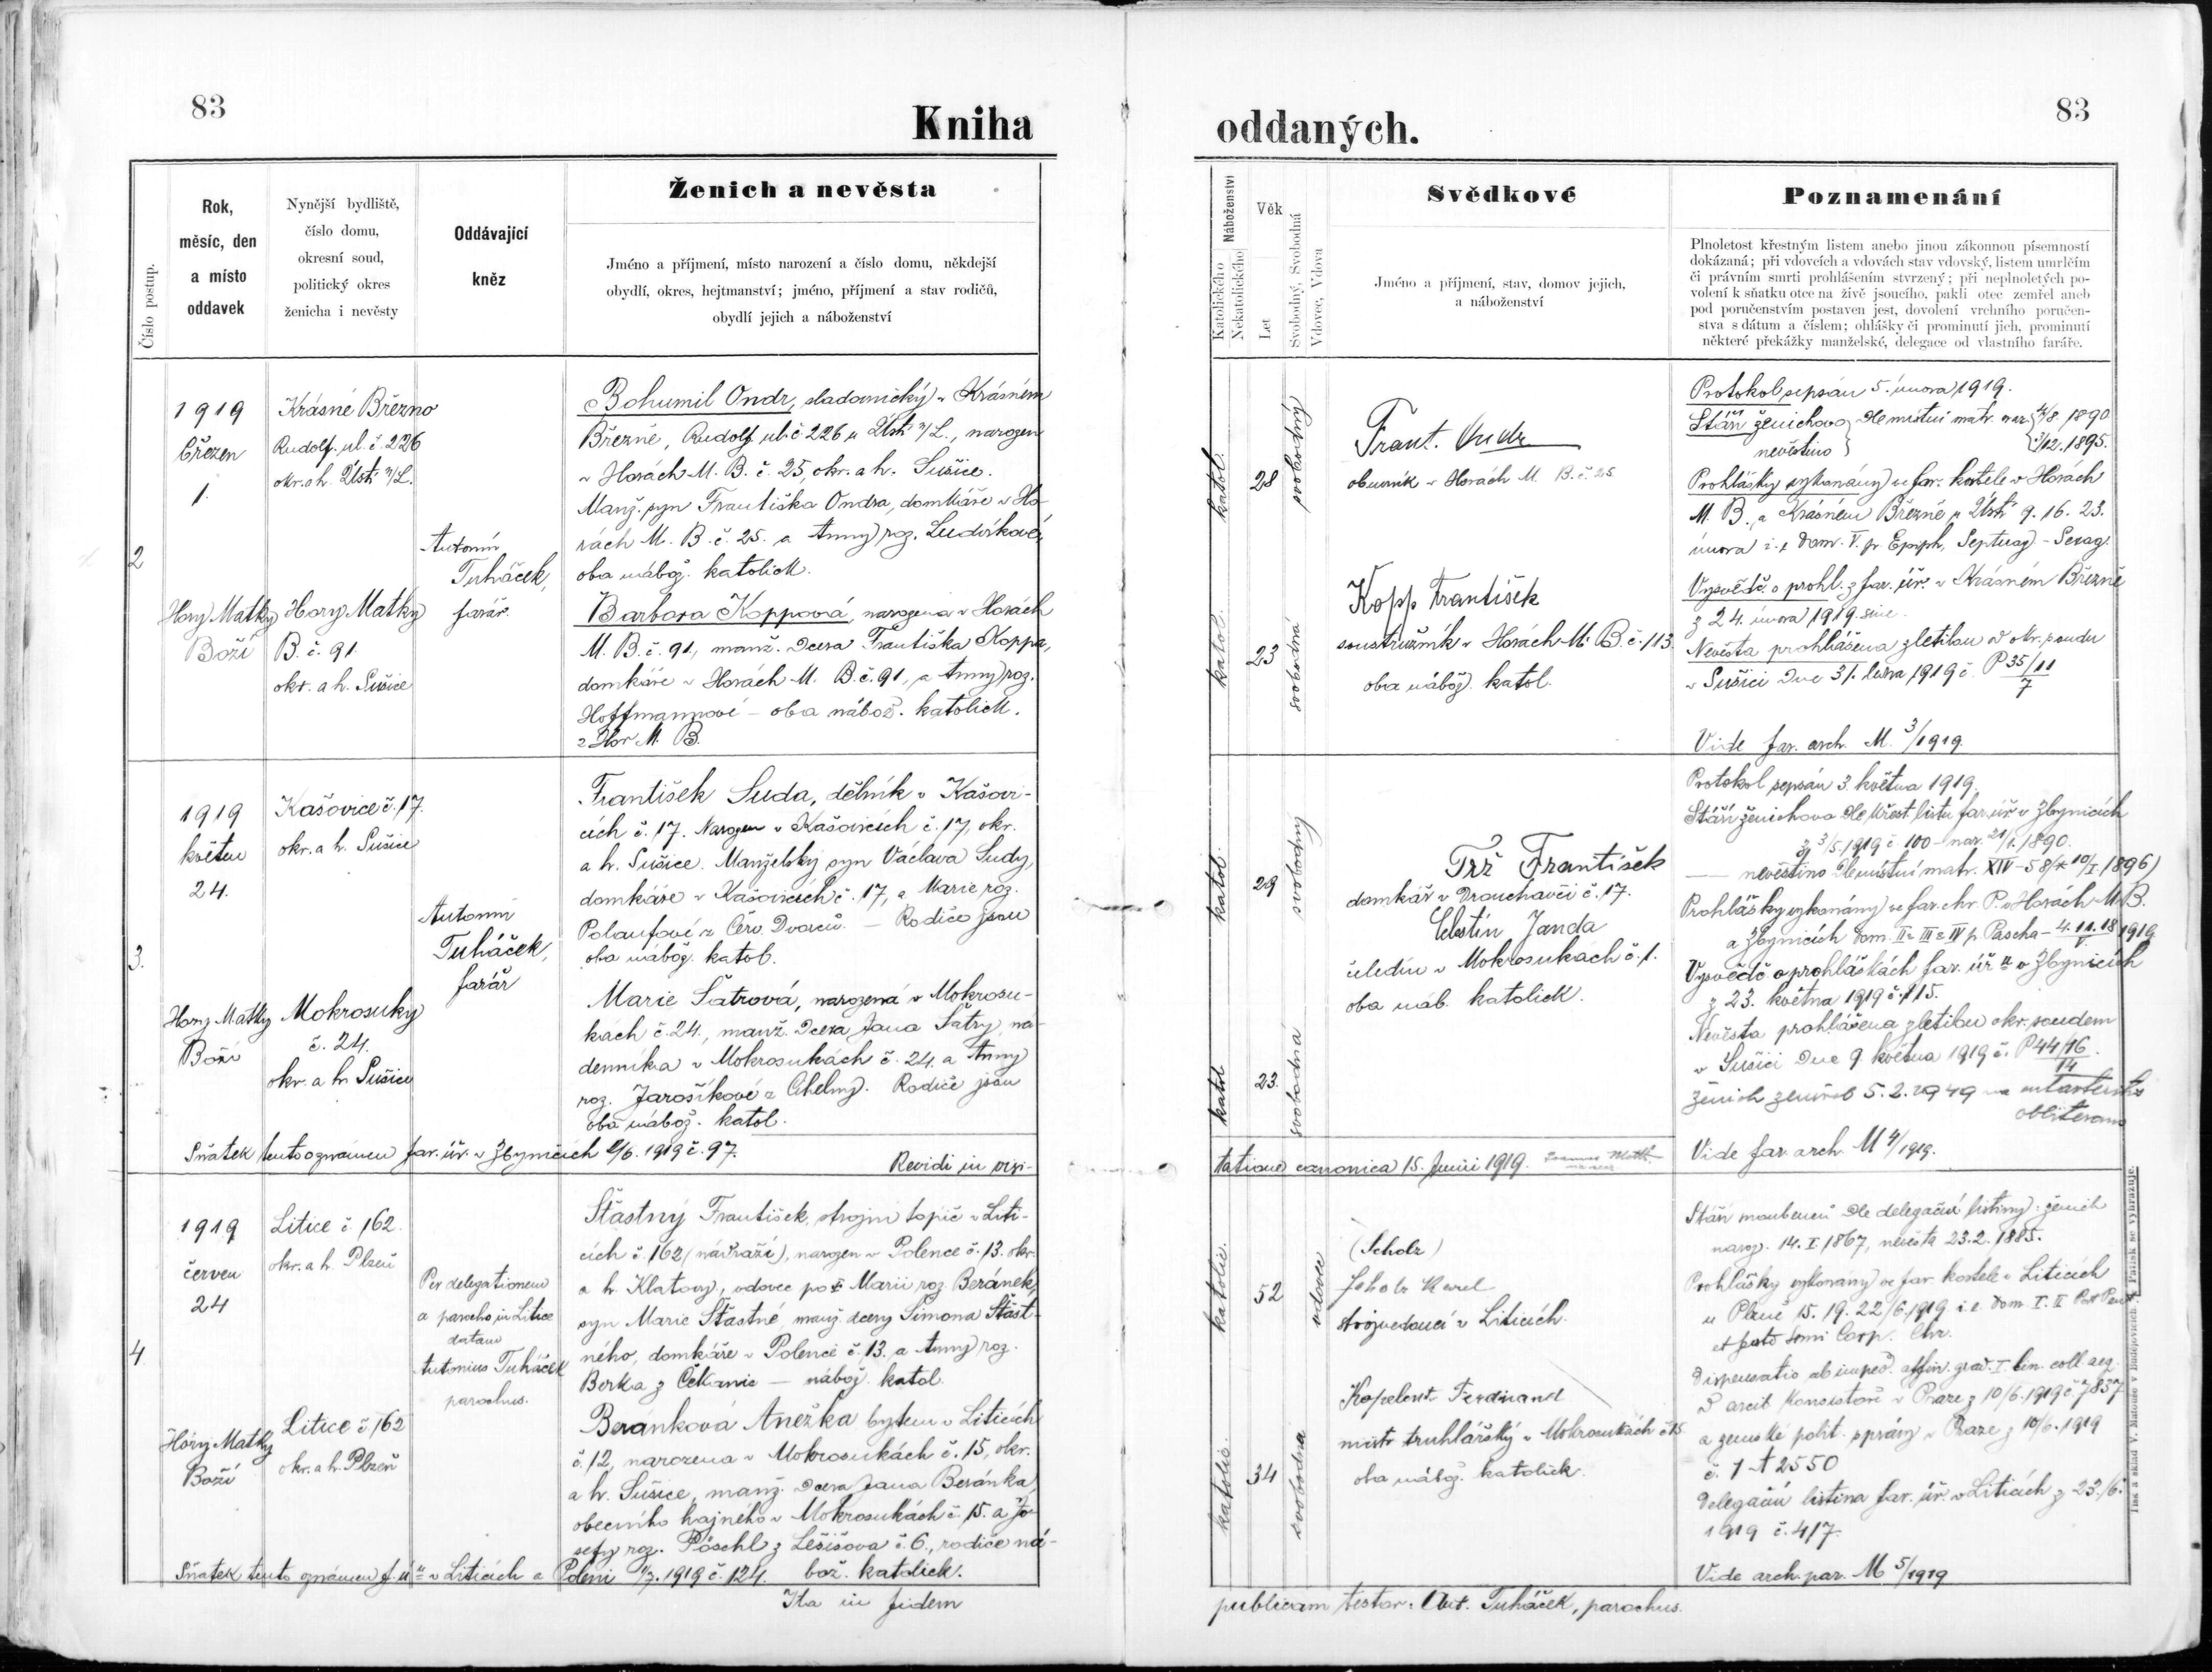 83
Kniha
Číslo postup.
Rok,
měsíc, den
a místo
oddavek
Nynější bydliště,
číslo domu,
okresní soud,
politický okres
ženicha i nevěsty
Oddávající
kněz
Ženich a nevěsta
Jméno a příjmení, místo narození a číslo domu, někdejší
obydlí, okres, hejtmanství; jméno, příjmení a stav rodičů,
obydlí jejich a náboženství
2
1919
březen
1.
Hory Matky
Boží
Krásné Březno
Rudolf. ul. č. 226
okr. a h. Ústí n/L.
Hory Matky
B. č. 91
okr. a h. Sušice
Antonín
Tuháček,
farář.
Bohumil Ondr, sladovnický v Krásném
Březně, Rudolf. ul. č. 226 u Ústí n/L., narozen
v Horách M. B. č. 25, okr. a h. Sušice.
Manž. syn Františka Ondra, domkáře v Ho-
rách M. B. č. 25. a Anny roz. Ludvíkové,
oba nábož. katolick.
Barbora Koppová, narozena v Horách
M. B. č. 91., manž. dcera Františka Koppa,
domkáře v Horách M. B. č. 91, a Anny roz.
Hoffmannové – oba nábož. katolick.
z Hor M. B.
3.
1919
květen
24.
Hory Matky
Boží
Kašovice č. 17.
okr. a h. Sušice
Mokrosuky
č. 24.
okr. a h. Sušice
Antonín
Tuháček,
farář
František Suda, dělník v Kašovi-
cích č. 17. Narozen v Kašovicích č. 17, okr.
a h. Sušice. Manželský syn Václava Sudy,
domkáře v Kašovicích č. 17, a Marie roz.
Polaufové z Červ. Dvorců. – Rodiče jsou
oba nábož. katol.
Marie Šatrová, narozená v Mokrosu-
kách č. 24., manž. dcera Jana Šatry, ná-
denníka v Mokrosukách č. 24. a Anny
roz. Jarošíkové z Cihelny. Rodiče jsou
oba nábož. katol.
Sňatek tento oznámen far. úř. v Zbynicích 2/6. 1919 č. 97.
Revidi in visi-
4
1919
červen
24
Hory Matky
Boží
Litice č. 162.
okr. a h. Plzeň
Litice č. 162
okr. a h. Plzeň
Per delegationem
a parocho in Litice
datam
Antonius Tuháček
parochus.
Šťastný František, strojní topič v Liti-
cích č. 162 (nádraží), narozen v Polence č. 13. okr.
a h. Klatovy, vdovec po Marii roz. Beránek,
syn Marie Šťastné, manž. dcery Šimona Šťast-
ného, domkáře v Polence č. 13. a Anny roz.
Berka z Čekanic – nábož. katol.
Beránková Anežka bytem v Liticích
č. 12, narozena v Mokrosukách č. 15, okr.
a h. Sušice, manž. dcera Jana Beránka,
obecního hajného v Mokrosukách č. 15. a Jo-
sefy roz. Pöschl z Lešišova č. 6., rodiče ná-
bož. katolick.
Sňatek tento oznámen f. ú. v Liticích a Poleni 1/7. 1919 č. 124.
Ita in fidem
83
oddaných.
Náboženství
Katolického
Nekatolického
Věk
Let
Svobodný, Svobodná
Vdovec, Vdova
Svědkové
Jméno a příjmení, stav, domov jejich,
a náboženství
Poznamenání
Plnoletost křestným listem anebo jinou zákonnou písemností
dokázaná; při vdovcích a vdovách stav vdovský, listem umrlčím
či právním smrti prohlášením stvrzený; při neplnoletých po-
volení k sňatku otce na živě jsoucího, pakli otec zemřel aneb
pod poručenstvím postaven jest, dovolení vrchního poručen-
stva s dátum a číslem; ohlášky či prominutí jich, prominutí
některé překážky manželské, delegace od vlastního faráře.
katol.
28
svobodný
katol.
23
svobodná
Frant. Ondr
obuvník v Horách M. B. č. 25
Kopp František
soustružník v Horách M. B. č. 113.
oba nábož. katol.
Protokol sepsán 5. února 1919.
Stáří ženichovo dle místní matr. nar. 8 1890
nevěstino 12. 1895.
Prohlášky vykonány ve far. kostele v Horách
M. B. a Krásném Březně u Ústí 9. 16. 23.
února i. e. Dom. V. p. Epiph, Septuag – Sexag.
Vysvědč. o prohl. z far. úř. v Krásném Březně
z 24. února 1919 sine.
Nevěsta prohlášena zletilou od okr. soudu
v Sušici dne 31. ledna 1919 č. P 35/11
7
Vide far. arch. M. 3/1919.
katol.
29
svobodný
katol
23.
svobodná
Trž František
domkář v Drouhavči č. 17.
Celestin Janda
čeledín v Mokrosukách č. 1.
oba náb. katolick.
Protokol sepsán 3. května 1919.
Stáří ženichovo dle křest. listu far. úř. v Zbynicích
z 3/5. 1919 č. 100 – nar. 21/1. 1890.
— nevěstino dle místní matr. XIV – 58 (* 10/I. 1896)
Prohlášky vykonány ve far. chr. P. v Horách M. B.
a Zbynicích Dom. II. III. IV p. Pascha – 4. 11. 18 1919
V.
Vysvědč. o prohláškách far. úř. v Zbynicích
z 23. května 1919 č. 115.
Nevěsta prohlášena zletilou okr. soudem
v Sušici dne 9 května 1919 č. P 44/16
14
ženich zemřel 5. 2. 1949
Vide far. arch. M 4/1919.
tatione canonica 15. Junii 1919.
katolic.
52
vdovec
katolic.
34
svobodna
(Scholz)
Scholz Karel
strojvedoucí v Liticích.
Kopelent Ferdinand
mistr truhlářský v Mokrosukách č 15.
oba nábož. katolick.
Stáří snoubenců dle delegační listiny: ženich
naroz. 14. I. 1867, nevěsta 23. 2. 1885.
Prohlášky vykonány ve far. kostele v Liticích
u Plzně 15. 19. 22/6. 1919 i. e. Dom. I. II Post Pent
et festo Corp. Chr.
Dispensatio ab imped. affin. grad. I lin. coll aeq.
konsistoře v Praze z 10/6. 1919 č 7837
a zemské polit. správy v Praze z 10/6. 1919
Delegační listina far. úř. v Liticích z 23./6.
1919 č. 417.
Vide arch. par. M 5/1919
publicam testor: Ant. Tuháček, parochus.